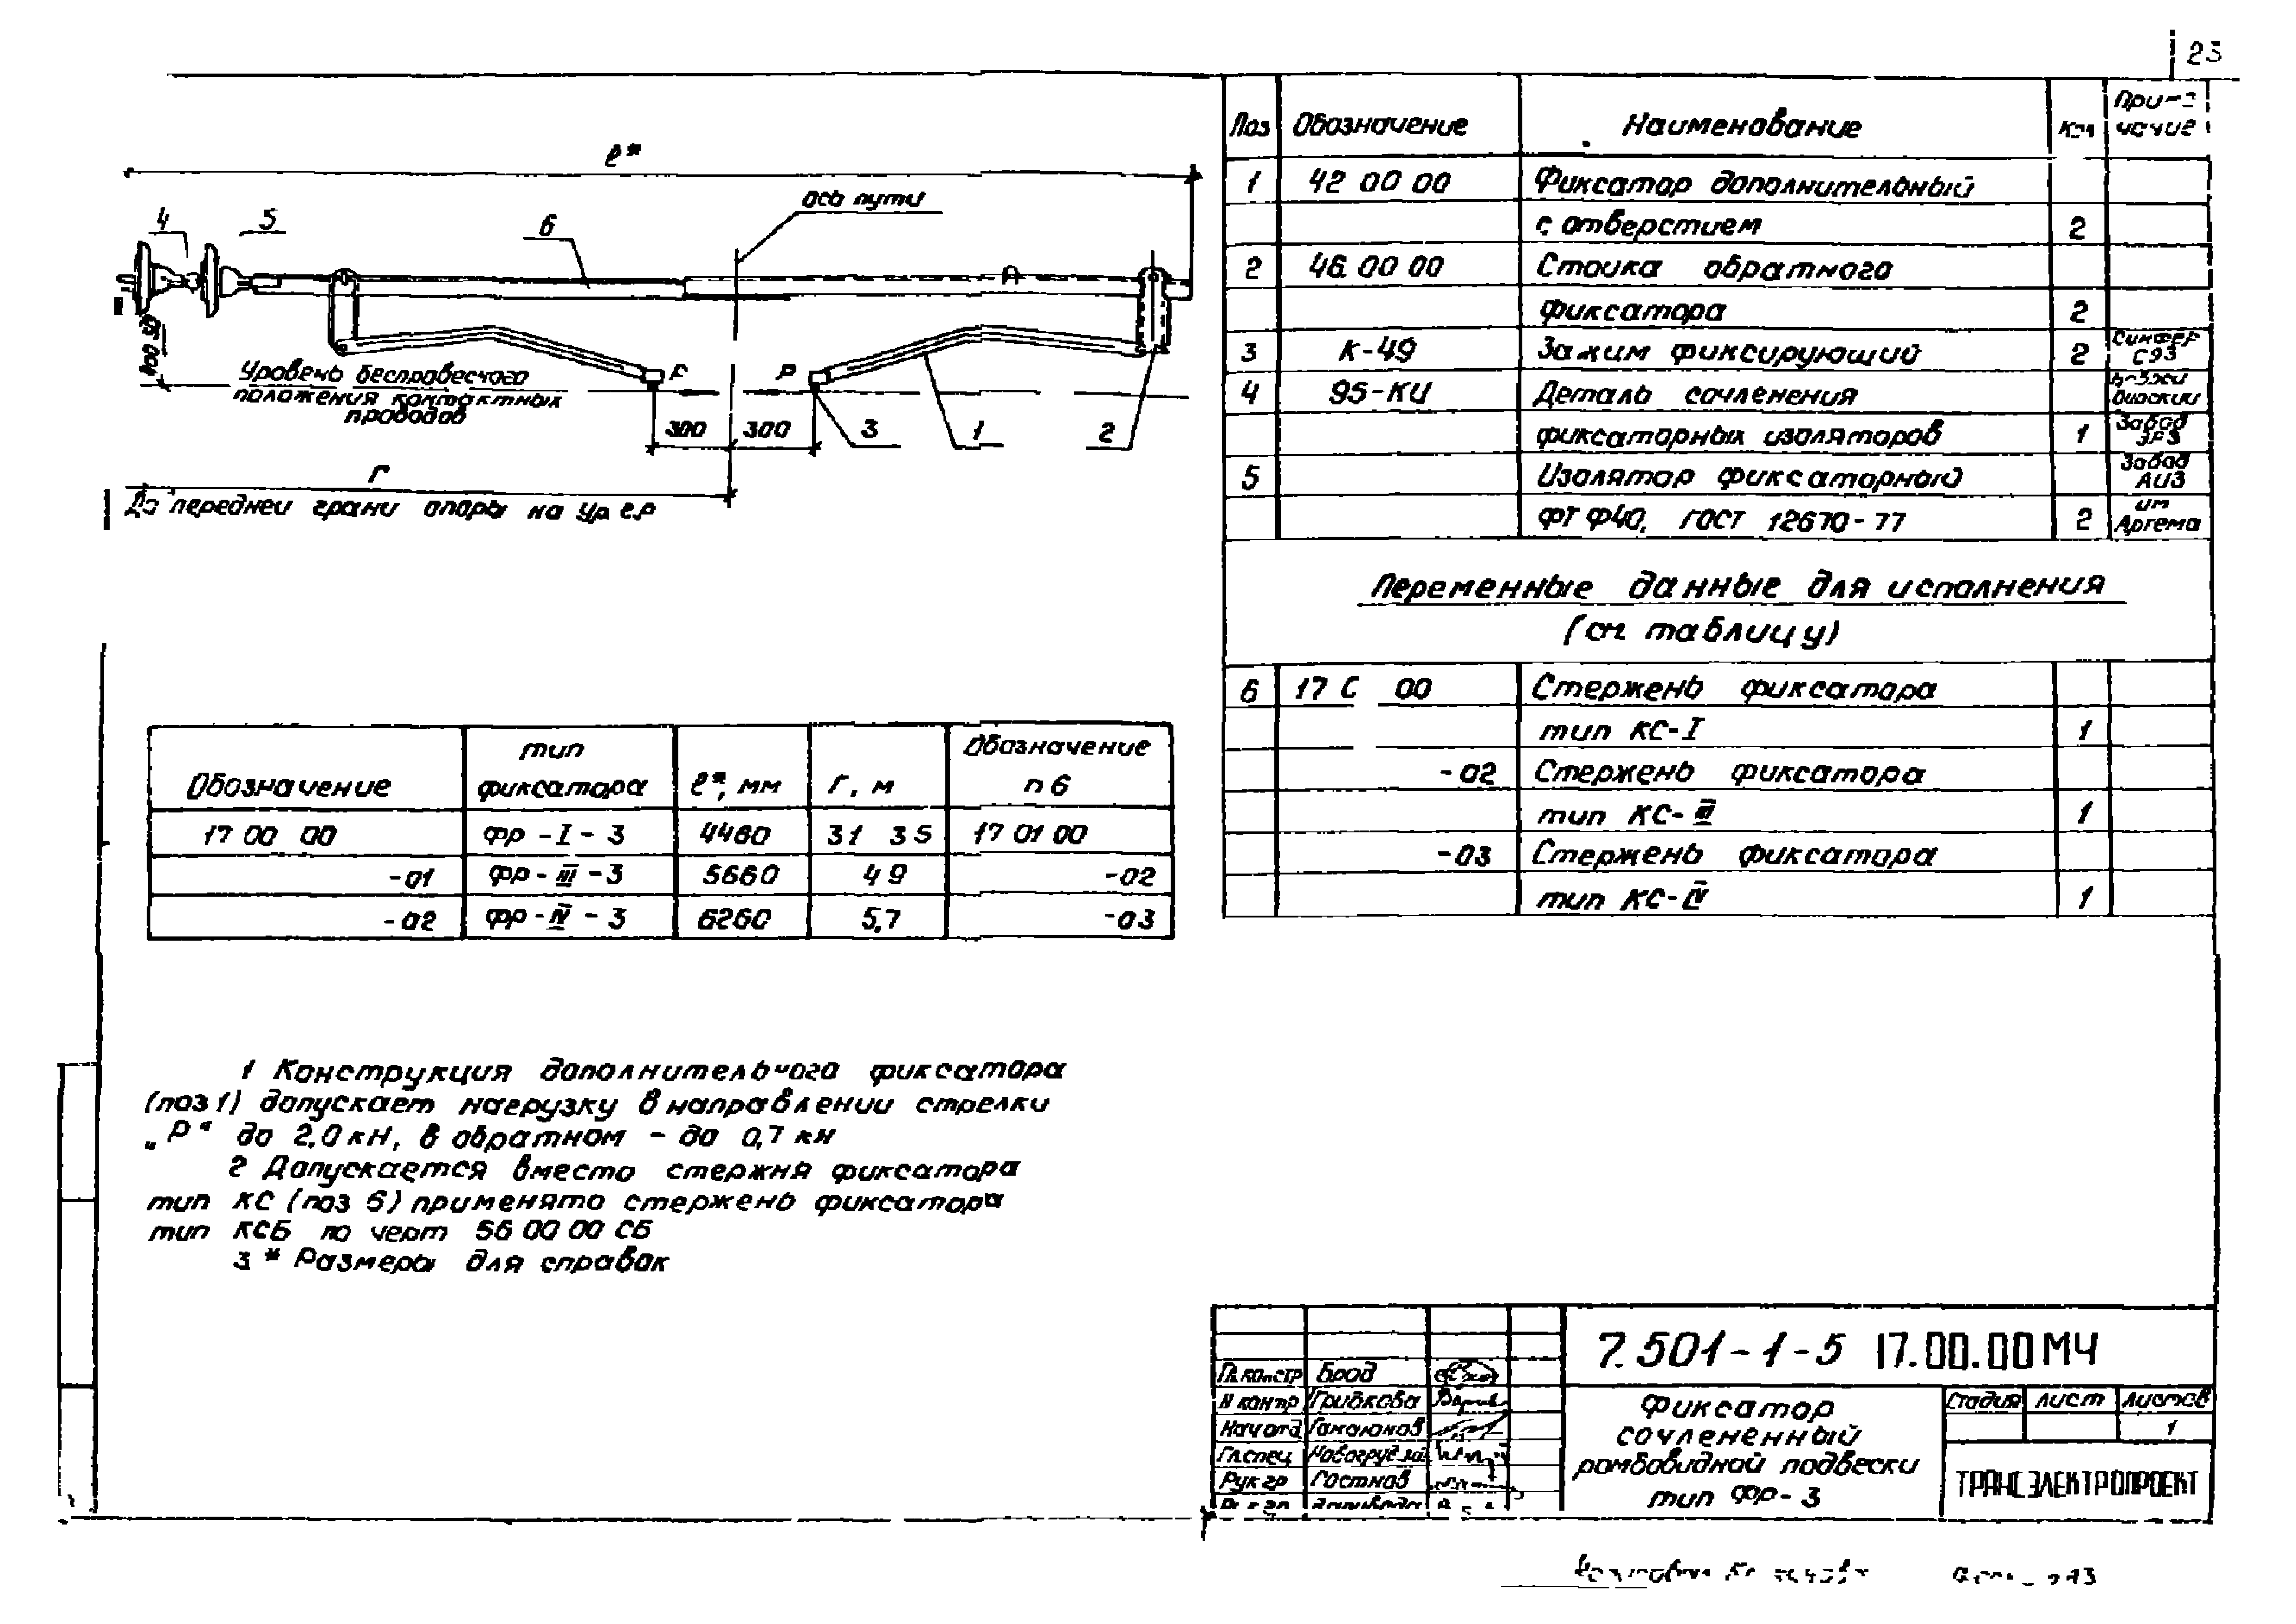 23
ℓ*
ось пути
4
5
6
Уровень беспровесного
положения контактных
проводов
Р
Р
300
300
3
1
2
Г
До передней грани опоры на ур г.р
Поз Обозначение Наименование Кол Приме
чание
1 42 00 00 Фиксатор дополнительный
с отверстием 2
2 46.00 00 Стойка обратного
фиксатора 2
3 К-49 Зажим фиксирующий 2
С93
4 95-КИ Деталь сочленения
фиксаторных изоляторов 1 Завод
5 Изолятор фиксаторный Завод
АИЗ
ФТФ40, ГОСТ 12670-77 2 им
Артема
Переменные данные для исполнения
(см таблицу)
6 17 С 00 Стержень фиксатора
тип КС-I 1
-02 Стержень фиксатора
тип КС-III 1
-03 Стержень фиксатора
тип КС-IV 1
Обозначение тип
фиксатора ℓ*, мм Г, м Обозначение
п 6
17 00 00 ФР-I-3 4460 31 35 17 01 00
-01 ФР-III-3 5660 4 9 -02
-02 ФР-IV-3 6260 5,7 -03
1 Конструкция дополнительного фиксатора
(поз 1) допускает нагрузку в направлении стрелки
„Р“ до 2,0 кН, в обратном - до 0,7 кН
2 Допускается вместо стержня фиксатора
тип КС (поз 6) применять стержень фиксатора
тип КСБ по черт 56 00 00 СБ
3 * Размеры для справок
7.501-1-5 17.00.00МЧ
Гл.констр Брод
Н контр Грибкова
Нач отд
Гл.спец
Рук гр
Фиксатор
сочлененный
ромбовидной подвески
тип ФР-3
Стадия Лист Листов
1
ТРАНСЭЛЕКТРОПРОЕКТ